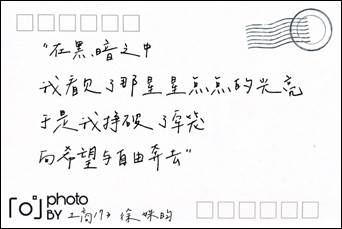 "在黑暗之中
我看见了那星星点点的光亮
于是我挣破了牢笼
向希望与自由奔去"
「o」photo
BY 工商17 徐姝昀